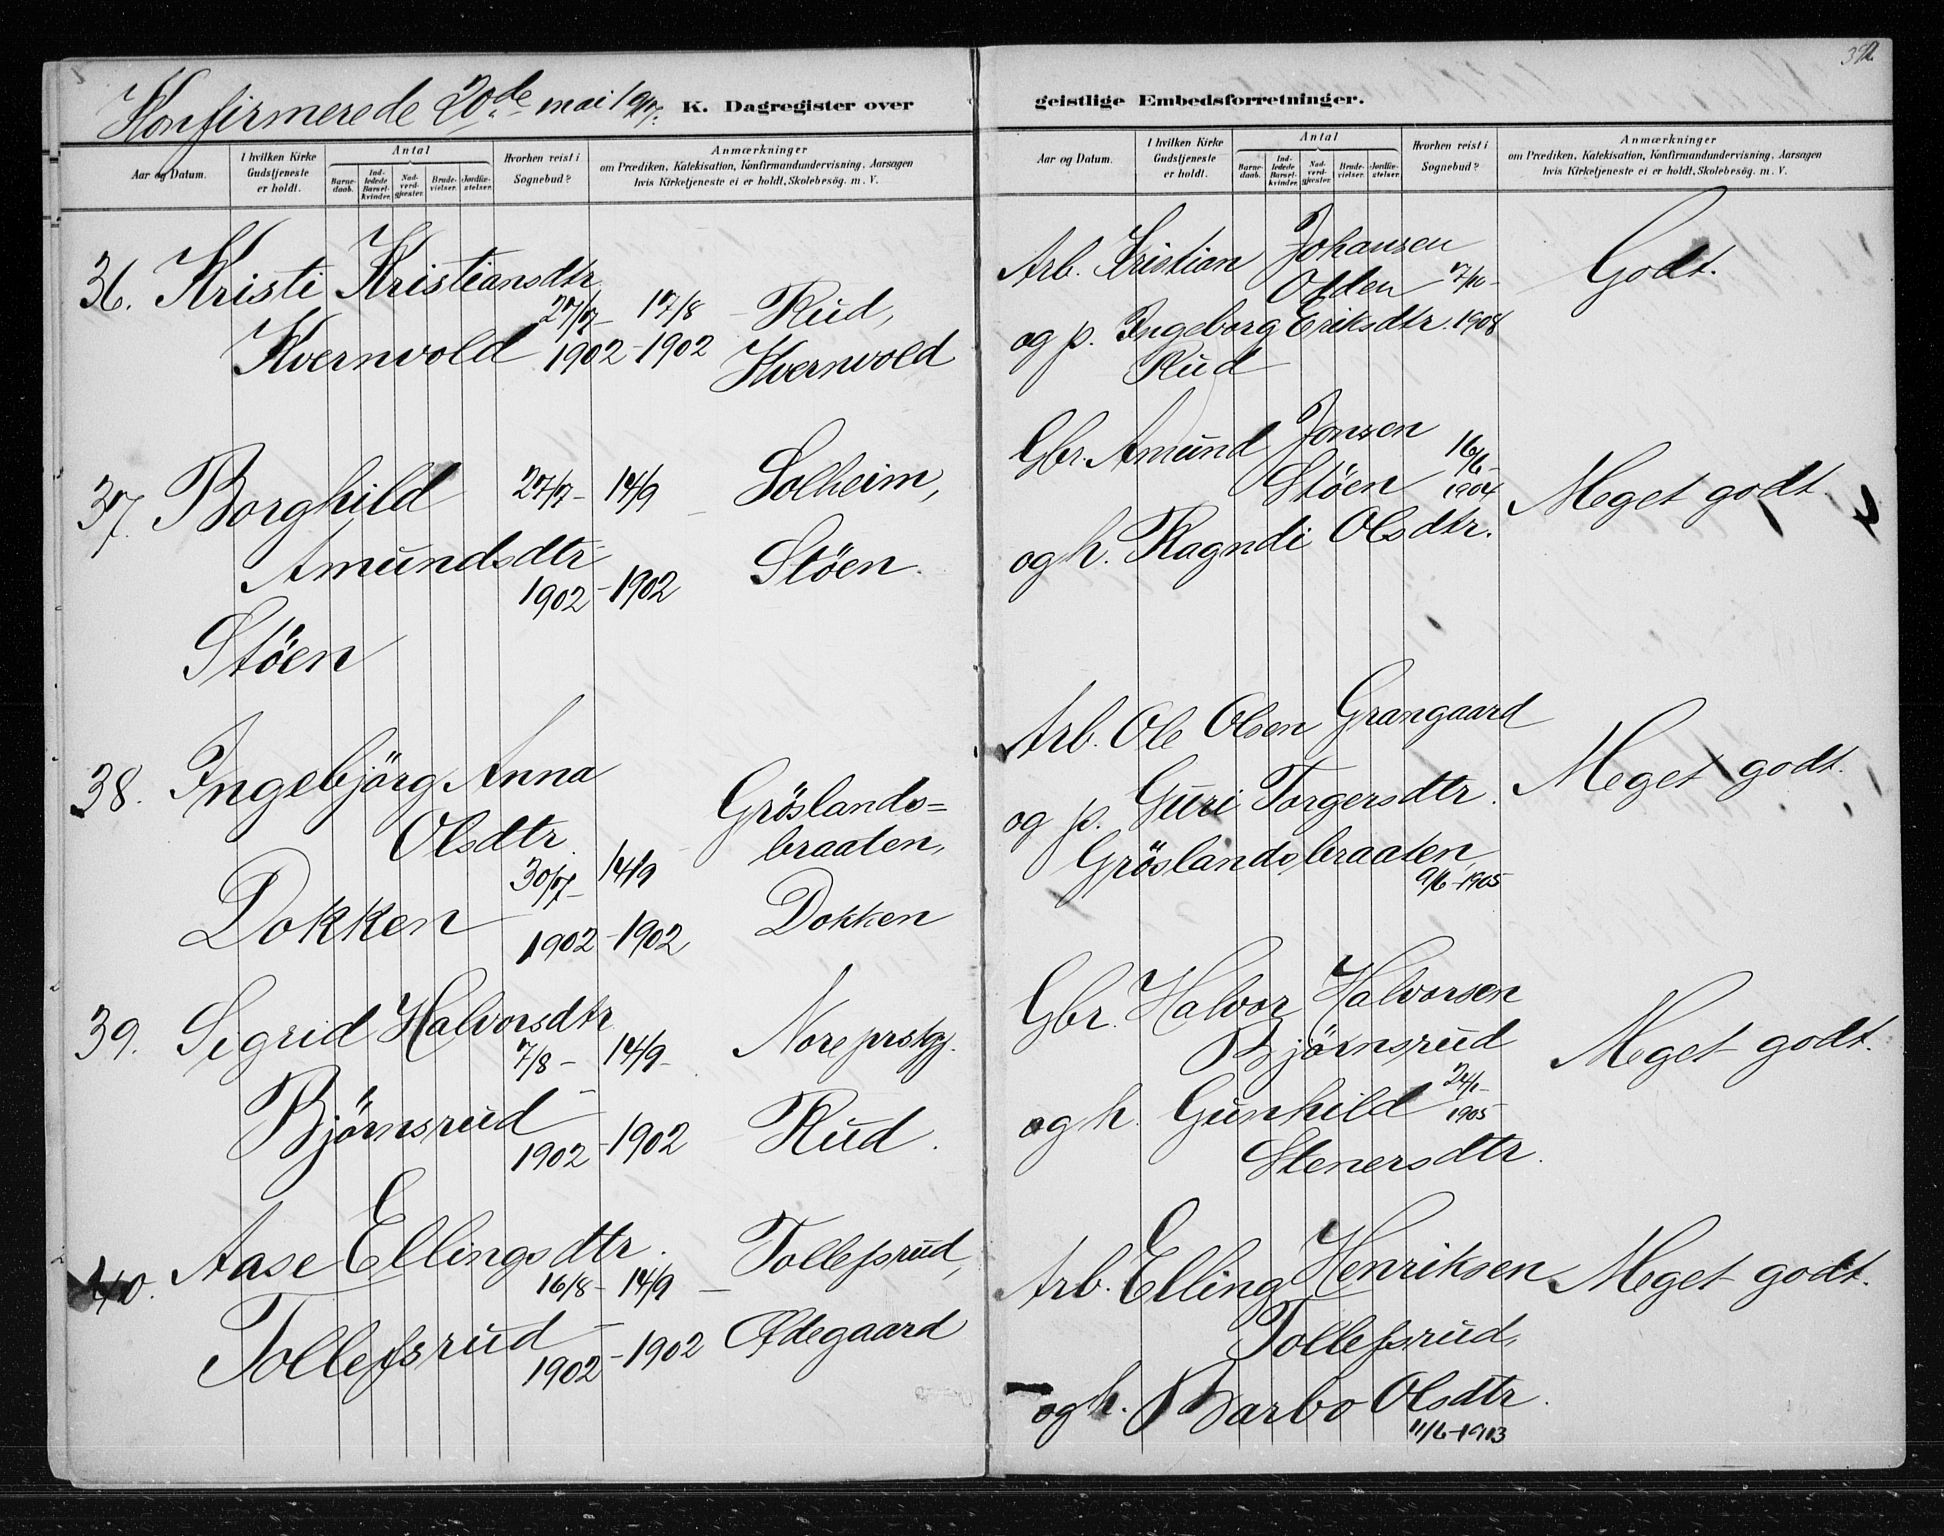 Konfirmerede 20de mai 1917. K. Dagregister over
Aar og Datum.
I hvilken Kirke Gudstjeneste er holdt.
Antal
Barne-daab.
Ind-ledede Barsel-kvinder.
Nad-verd-gjester.
Brude-vielser.
Jordfæ-stelser.
Hvorhen reist i Sognebud?
Anmærkninger
om Prædiken, Katekisation, Konfirmandundervisning, Aarsagen
hvis Kirketjeneste ei er holdt, Skolebesøg. m. V.
36. Kristi Kristiansdtr.
27/7 - 17/8 - Rud,
Kvernvold 1902 - 1902 Kvernvold
37. Borghild 27/7 - 14/9 - Solheim,
Amundsdtr. Stöen.
1902 - 1902
Stöen
38. Ingebjörg Anna Gröslands=
Olsdtr. braaten,
30/7 - 14/9
Dokken 1902 - 1902 Dokken
39. Sigrid Halvorsdtr. Nore prstgj.
7/8 - 14/9
Bjørnsrud - Rud.
1902 - 1902
40. Aase Ellingsdtr. Tollefsrud,
16/8 - 14/9 -
Tollefsrud - Ødegaard
1902 - 1902
geistlige Embedsforretninger.
Aar og Datum.
I hvilken Kirke Gudstjeneste er holdt.
Antal
Barne-daab.
Ind-ledede Barsel-kvinder.
Nad-verd-gjester.
Brude-vielser.
Jordfæ-stelser.
Hvorhen reist i Sognebud?
Anmærkninger
om Prædiken, Katekisation, Konfirmandundervisning, Aarsagen
hvis Kirketjeneste ei er holdt, Skolebesøg. m. V.
Arb. Kristian Johansen Godt.
og p. Ingeborg Eriksdtr. 1908
Rud
Gbr. Amund Jonsen 16/6 -
Stöen 1904 Meget godt
og h. Ragndi Olsdtr.
Arb. Ole Olsen Grangaard
og p. Guri Torgersdtr. Meget godt.
Gröslandsbraaten
9/6 - 1905
Gbr. Halvor Halvorsen
Bjørnsrud Meget godt.
og h. Gunhild 24/1 - 1905
Stenersdtr.
Arb. Elling Henriksen Meget godt.
Tollefsrud,
og h. Barbo Olsdtr.
11/6 - 1913